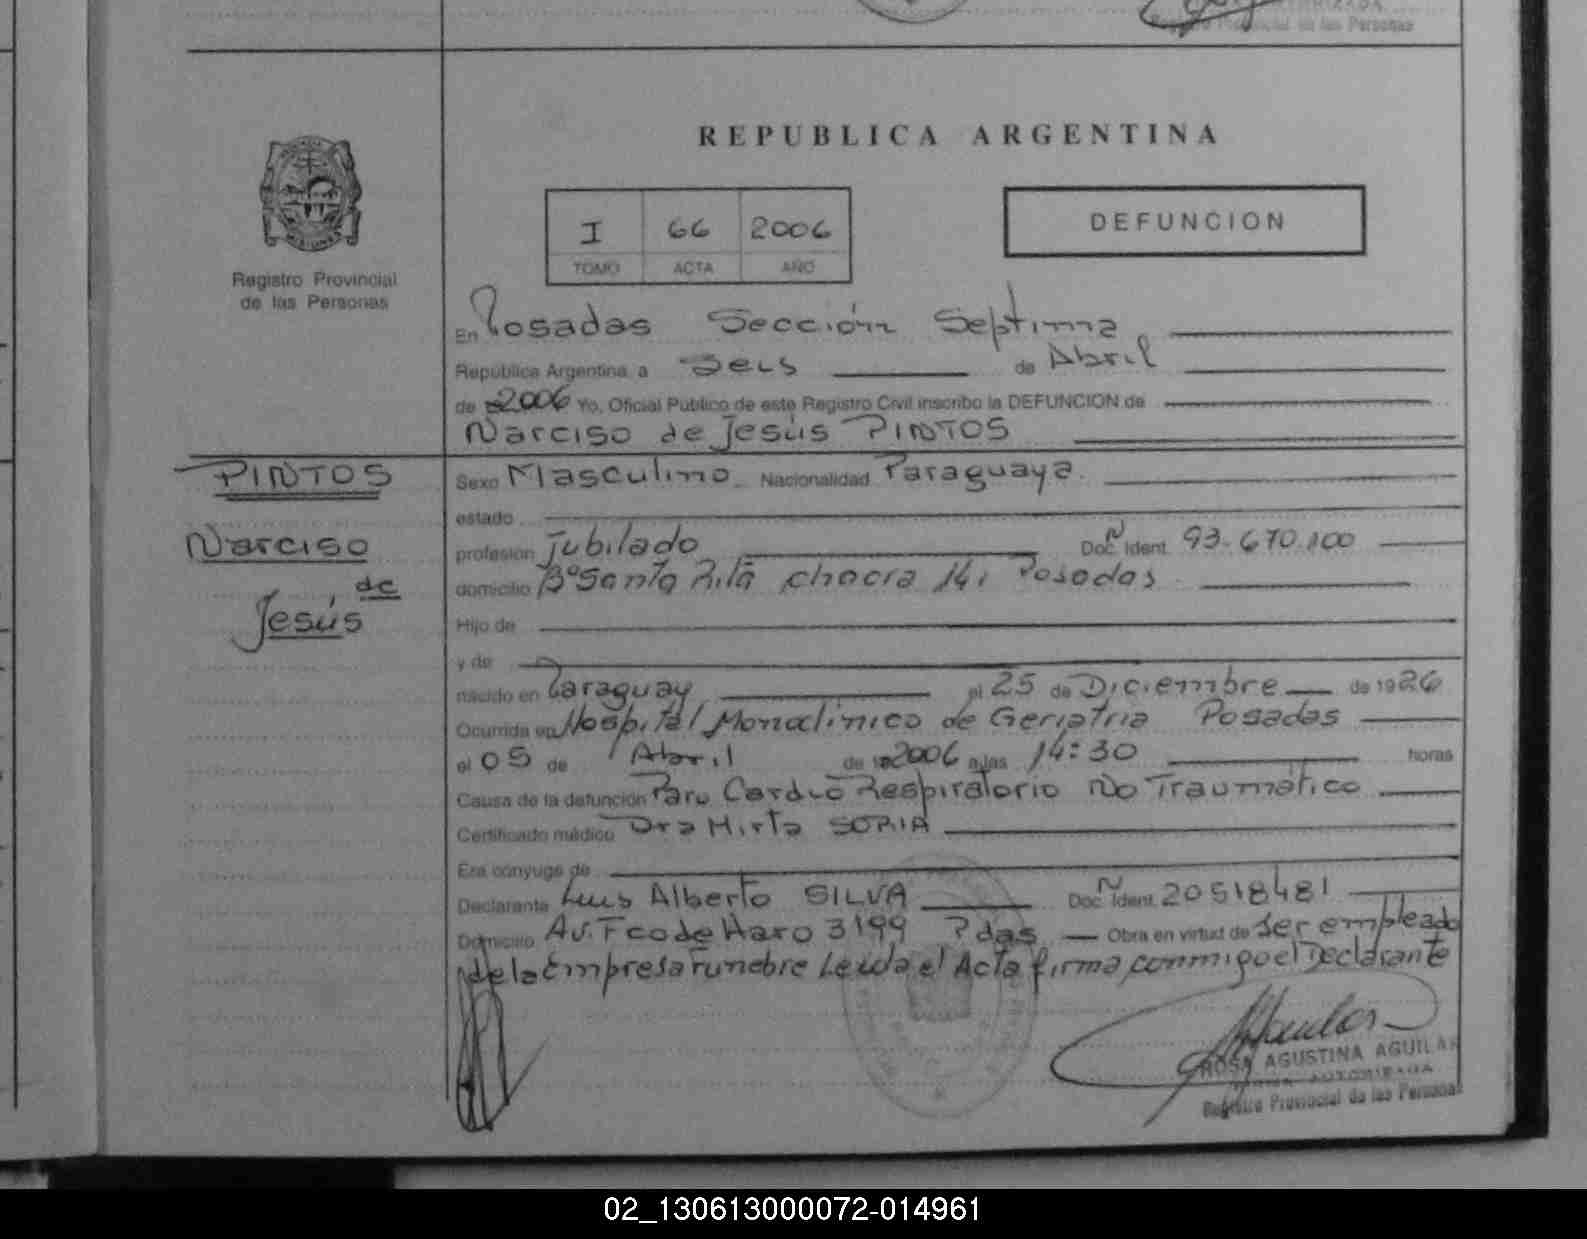 Registro Provincial de las Personas
REPUBLICA ARGENTINA
I 66 2006
TOMO ACTA AÑO
DEFUNCION
Registro Provincial
de las Personas
En Posadas Sección Septima
República Argentina a Seis de Abril
de 2006 Yo, Oficial Público de este Registro Civil inscribo la DEFUNCION de
Narciso de Jesús PINTOS
PINTOS
Narciso
de
Jesús
Sexo Masculino Nacionalidad Paraguaya.
estado
profesión Jubilado Doc. N Ident. 93.670.100
domicilio Bº Santa Rita chacra 141 Posadas
Hijo de
y de
nacido en Paraguay el 25 de Diciembre de 1926
Ocurrida en Hospital Monoclinico de Geriatria Posadas
el 05 de Abril de 2006 a las 14:30 horas
Causa de la defunción Paro Cardio Respiratorio No Traumático
Certificado médico Dra Mirta SORIA
Era cónyuge de
Declarante Luis Alberto SILVA Doc. N Ident. 20518481
Domicilio Av. Fco de Haro 3199 Pdas Obra en virtud de Ser empleado
de la Empresa Funebre Leida el Acta firma conmigo el Declarante
ROSA AGUSTINA AGUILAR
FIRMA AUTORIZADA
Registro Provincial de las Personas
02_130613000072-014961